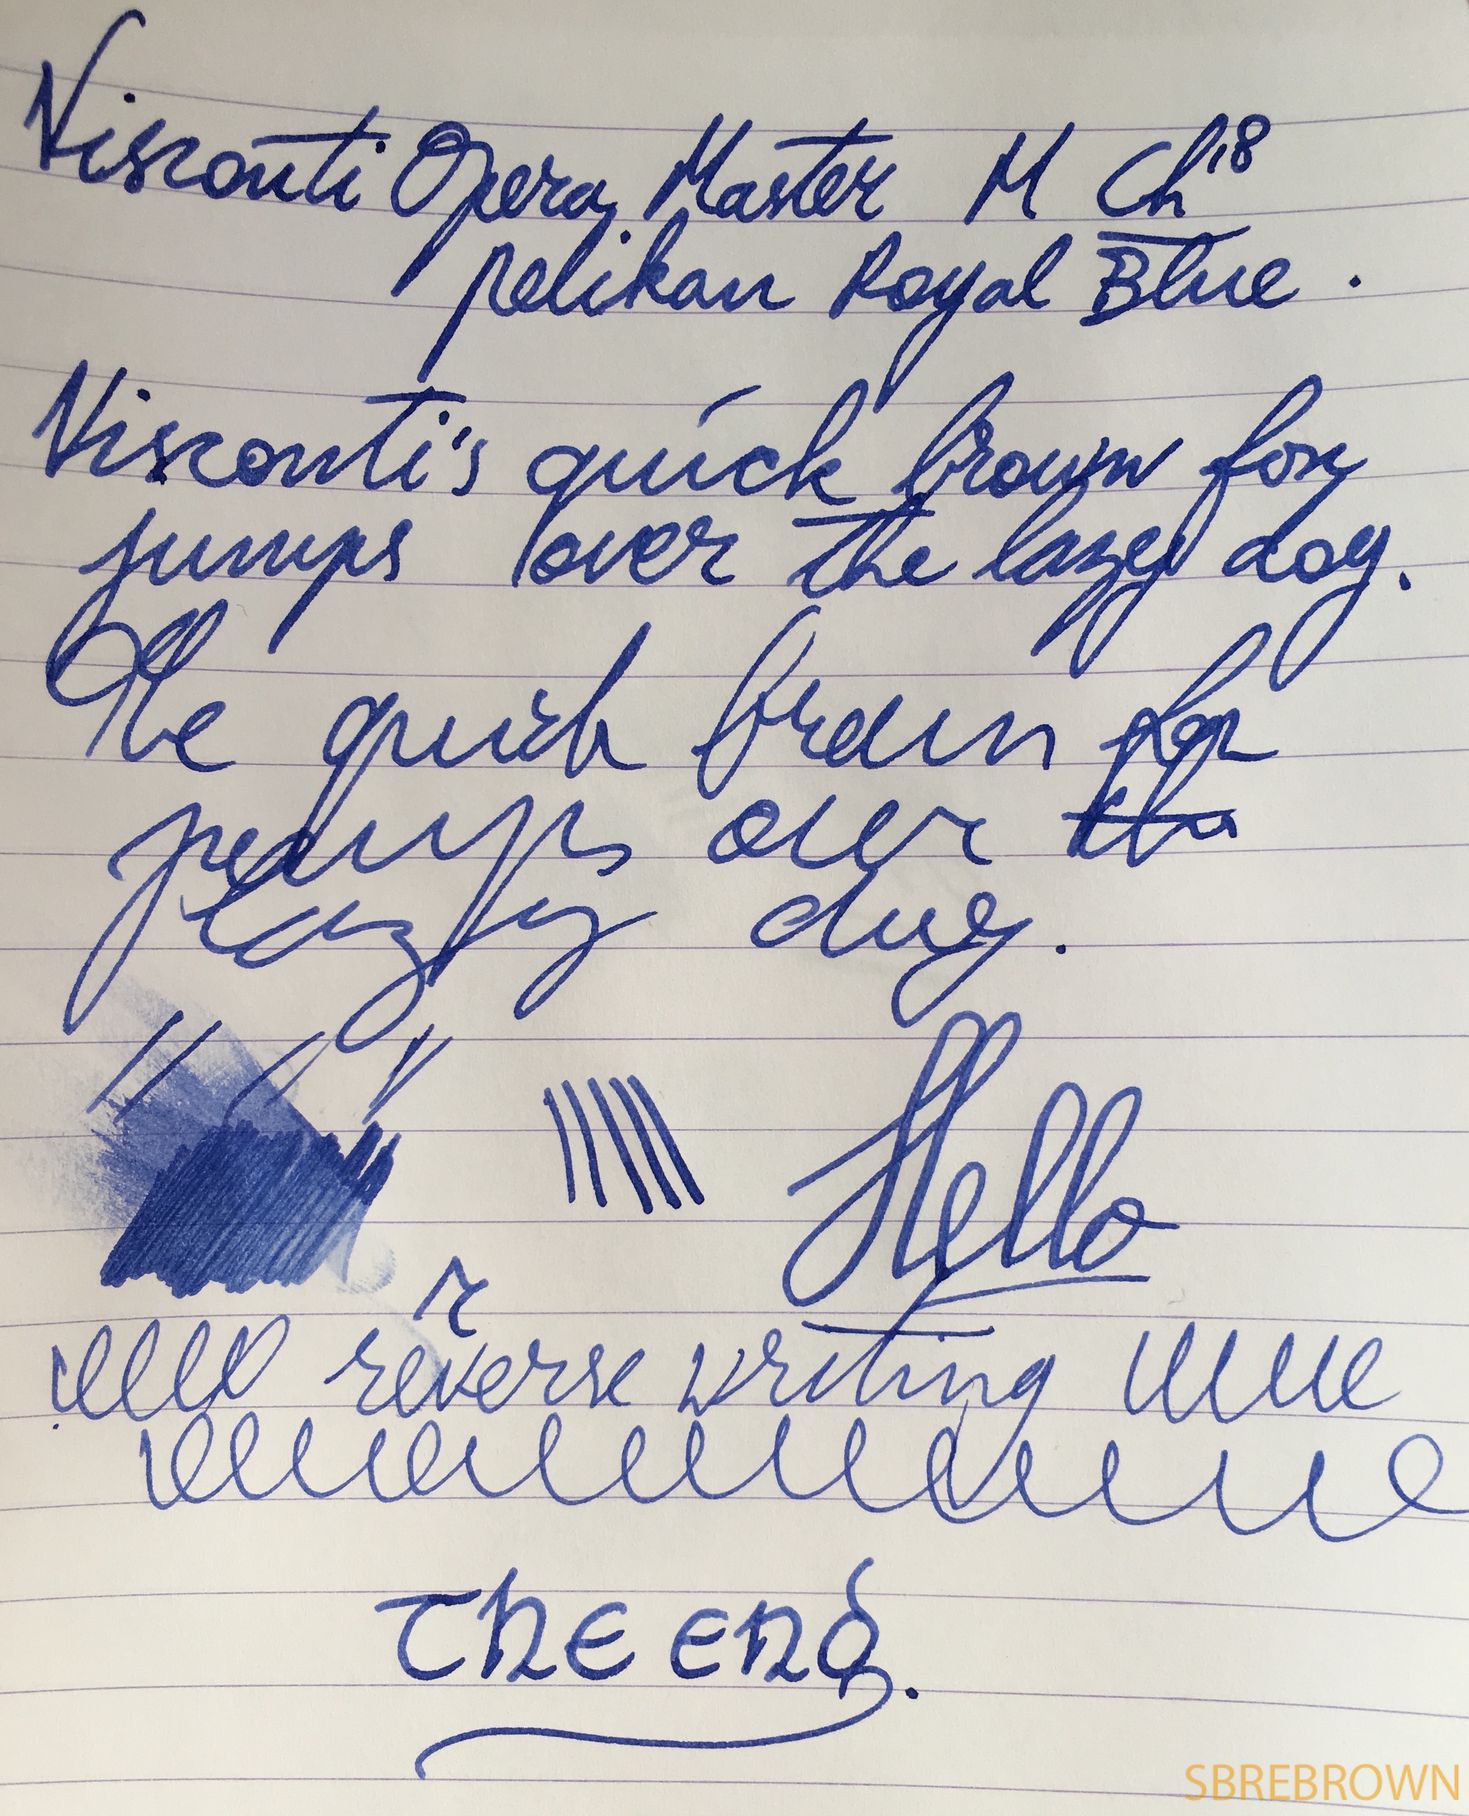 Visconti Opera Master M Ch18
Pelikan Royal Blue.
Visconti's quick brown fox
jumps over the lazy dog.
The quick brown fox
jumps over the
lazy dog.
Hello
r
reverse writing
The End.
SBREBROWN